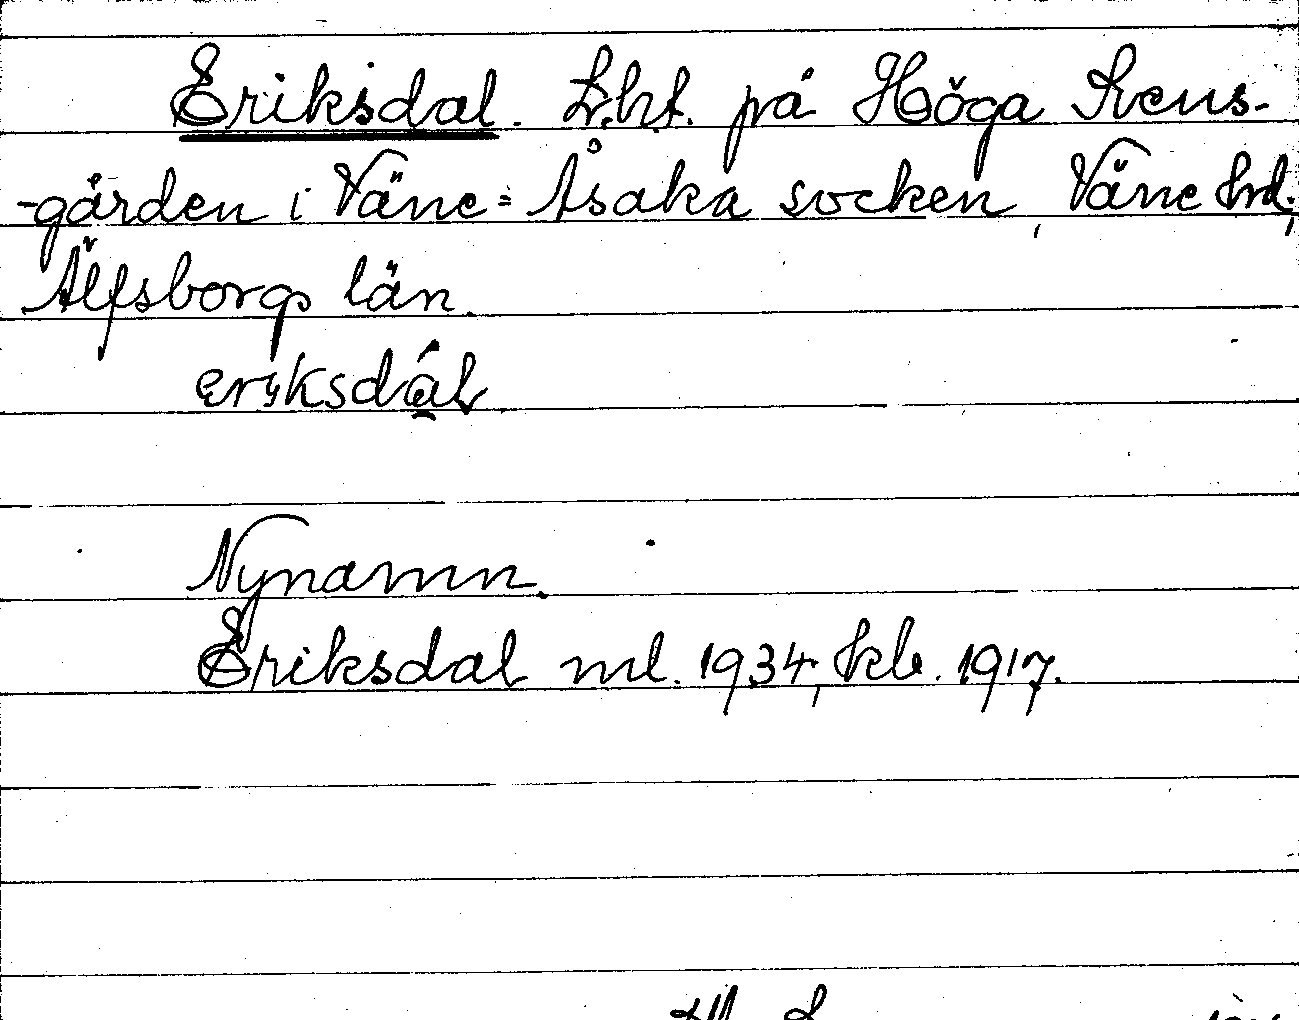 Eriksdal. Lht. på Höga Rens-
-gården i Väne-Åsaka socken, Väne hrd,
Älfsborgs län.
eriksdál
Nynamn.
Eriksdal ml. 1934, kb. 1917.